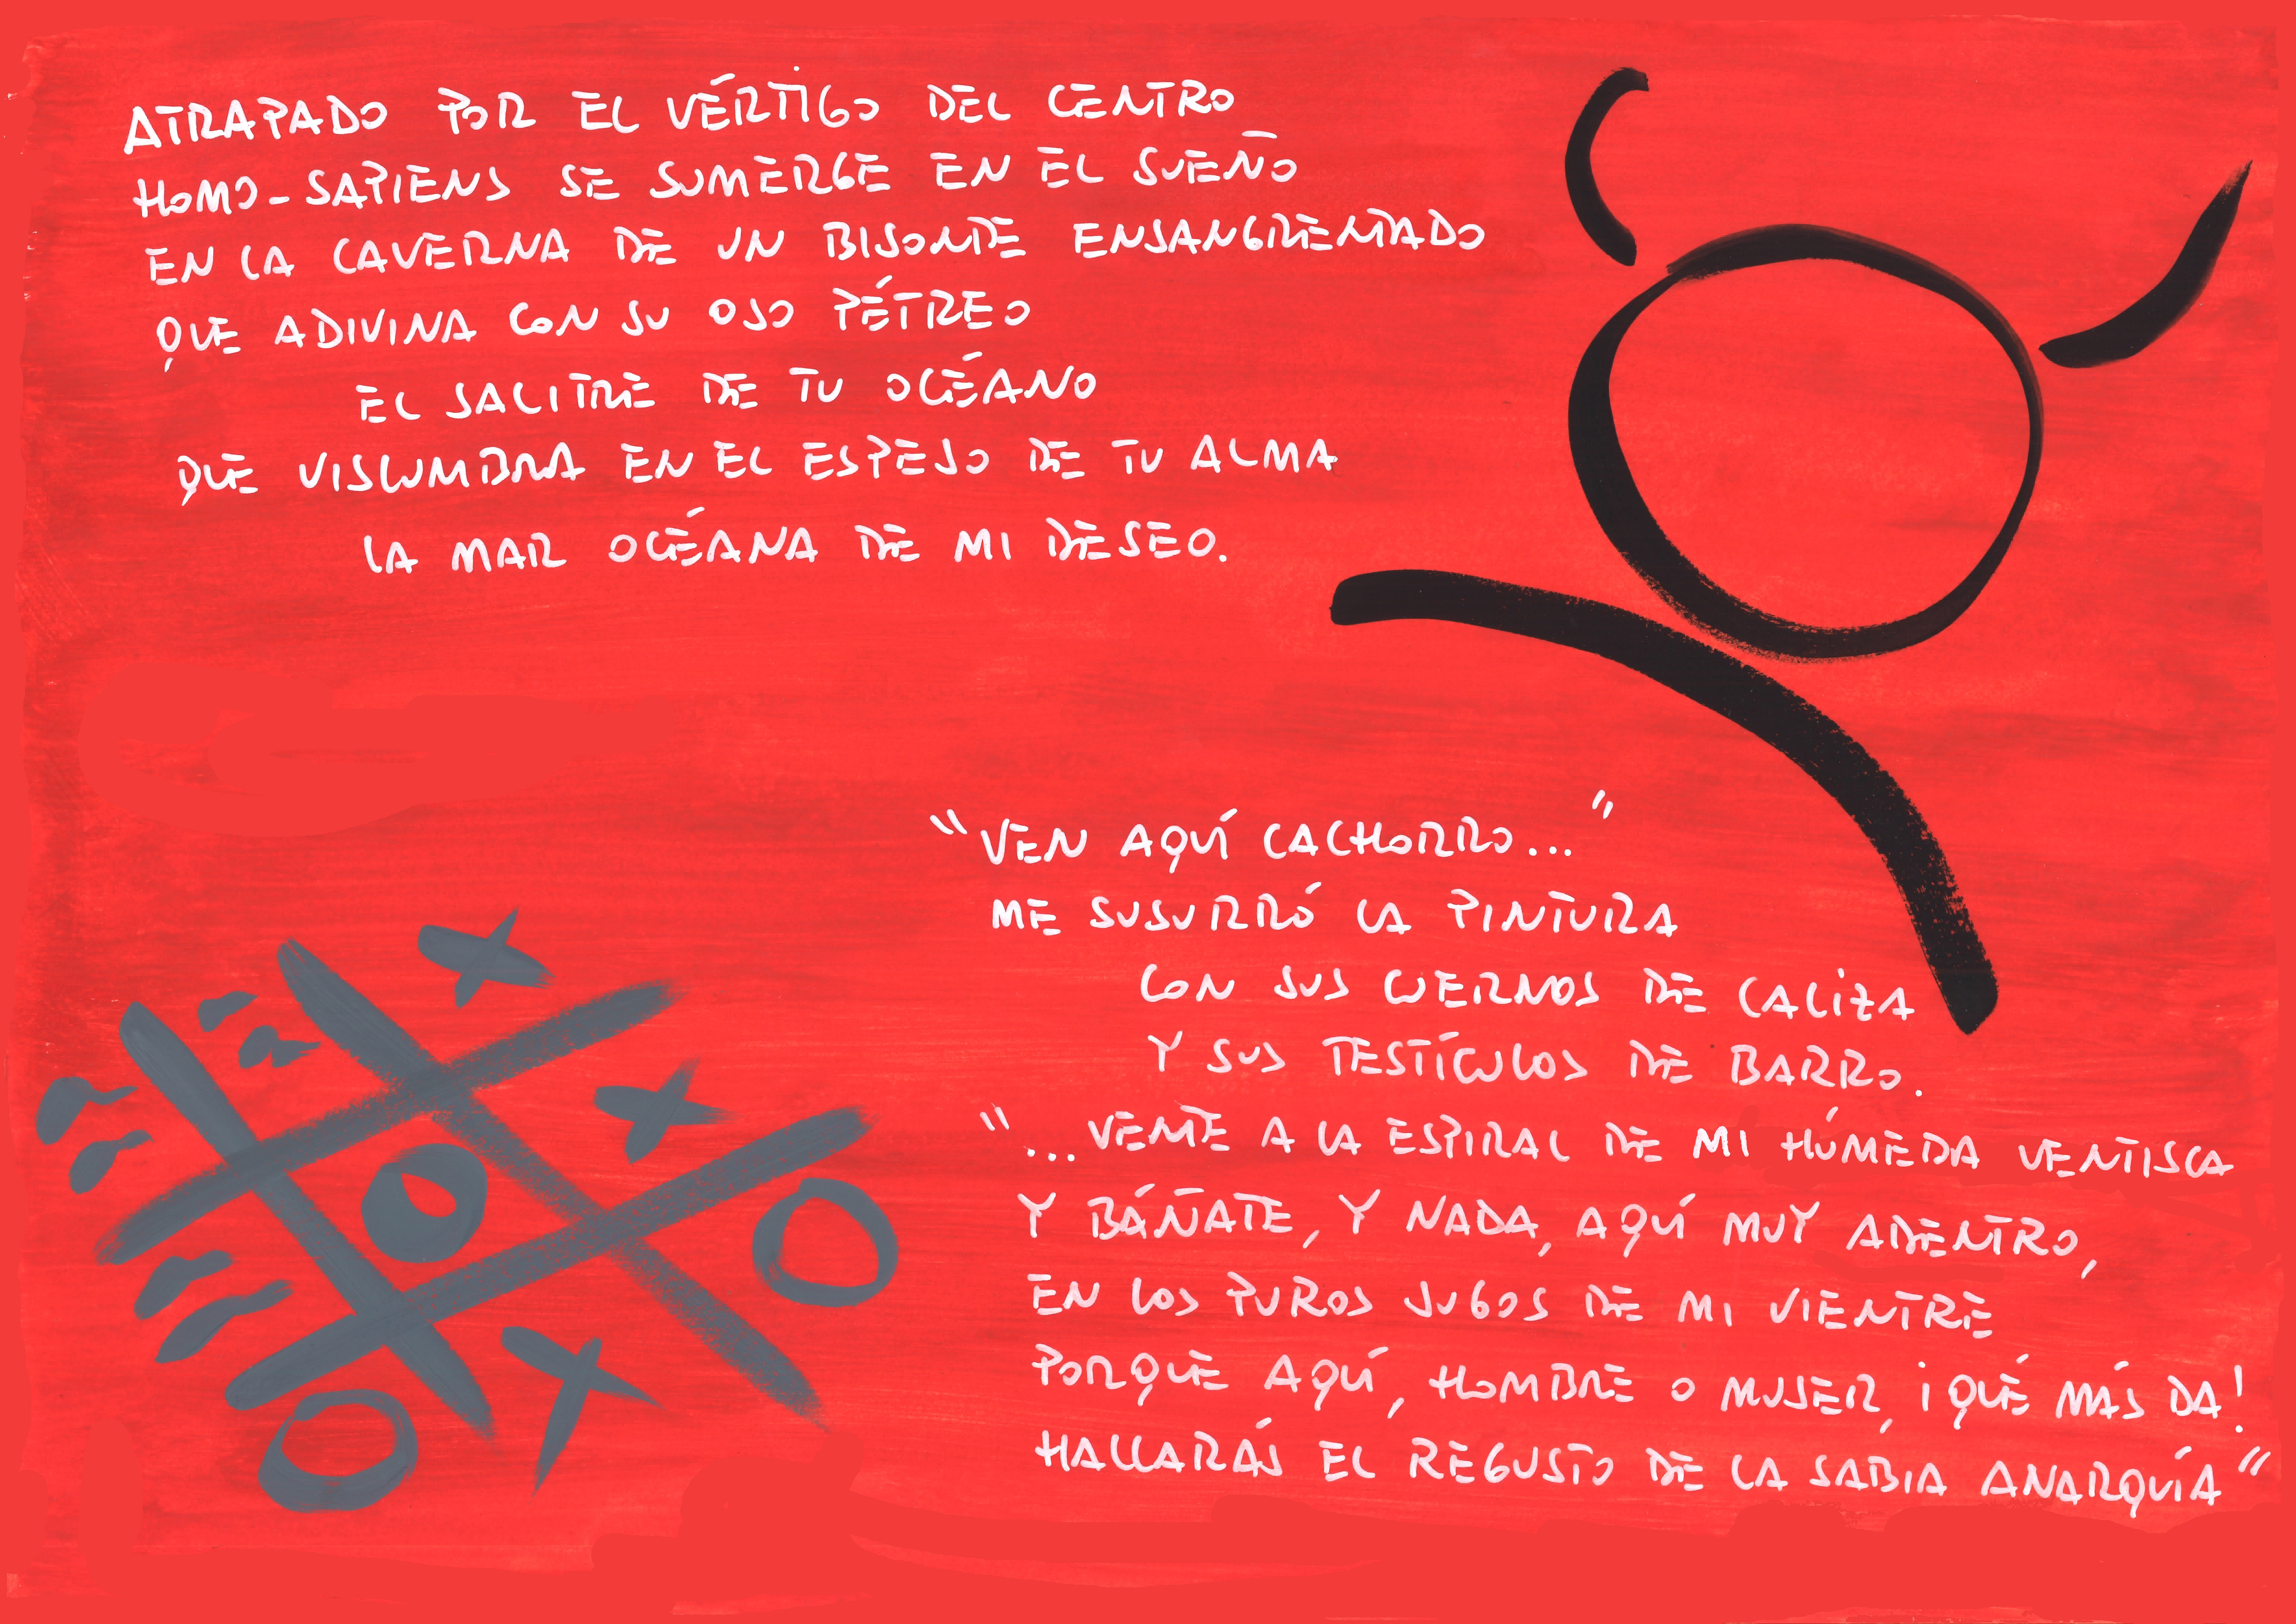 ATRAPADO POR EL VÉRTIGO DEL CENTRO
HOMO-SAPIENS SE SUMERGE EN EL SUEÑO
EN LA CAVERNA DE UN BISONTE ENSANGRENTADO
QUE ADIVINA CON SU OSO PÉTREO
EL SALITRE DE TU OCÉANO
QUE VISLUMBRA EN EL ESPEJO DE TU ALMA
LA MAR OCÉANA DE MI DESEO.
"VEN AQUÍ CACHORRO..."
ME SUSURRÓ LA PINTURA
CON SUS CUERNOS DE CALIZA
Y SUS TESTÍCULOS DE BARRO.
"...VENTE A LA ESPIRAL DE MI HÚMEDA VENTISCA
Y BÁÑATE, Y NADA, AQUÍ MUY ADENTRO,
EN LOS PUROS JUGOS DE MI VIENTRE
PORQUE AQUÍ, HOMBRE O MUJER, ¡QUÉ MÁS DA!
HALLARÁS EL REGUSTO DE LA SABIA ANARQUÍA"